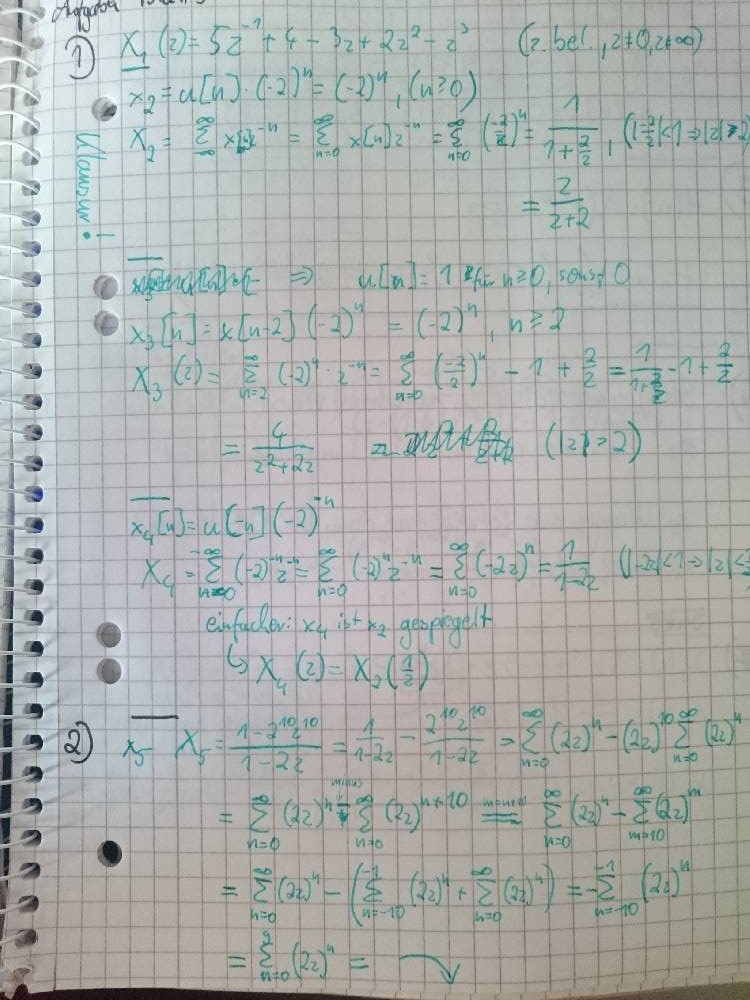 Aufgabe
1) X₁(z) = 5z⁻¹ + 4 − 3z + 2z² − z³ (z bel., z≠0, z≠∞)
x₂ = u[n]·(-2)ⁿ = (-2)ⁿ, (n≥0)
X₂ = Σ_{-∞}^{∞} x[n]z⁻ⁿ = Σ_{n=0}^{∞} x[n]z⁻ⁿ = Σ_{n=0}^{∞} (-2/z)ⁿ = 1/(1+2/z), (|-2/z|<1 ⇒ |z|>2)
= z/(z+2)
Klausur!
⇒ u[n] = 1 für n≥0, sonst 0
x₃[n] = x[n-2](-2)ⁿ = (-2)ⁿ, n≥2
X₃(z) = Σ_{n=2}^{∞} (-2)ⁿ·z⁻ⁿ = Σ_{n=0}^{∞} (-2/z)ⁿ − 1 + 2/z = 1/(1+2/z) − 1 + 2/z
= 4/(z²+2z) (|z|>2)
x₄[n] = u[-n](-2)⁻ⁿ
X₄ = Σ (-2)⁻ⁿz⁻ⁿ = Σ_{n=0}^{∞} (-2)ⁿz⁻ⁿ = Σ_{n=0}^{∞} (-2z)ⁿ = 1/(1-2z) (|-2z|<1 ⇒ |z|<
einfacher: x₄ ist x₂ gespiegelt
↳ X₄(z) = X₂(1/z)
2) x₅ X₅ = (1-2¹⁰z¹⁰)/(1-2z) = 1/(1-2z) − 2¹⁰z¹⁰/(1-2z) ⇒ Σ_{n=0}^{∞} (2z)ⁿ − (2z)¹⁰ Σ_{n=0}^{∞} (2z)ⁿ
= Σ_{n=0}^{∞} (2z)ⁿ − Σ_{n=0}^{∞} (2z)ⁿ⁺¹⁰ = Σ_{n=0}^{∞} (2z)ⁿ − Σ_{m=10}^{∞} (2z)ᵐ
= Σ_{n=0}^{∞} (2z)ⁿ − (Σ_{n=-10}^{-1} (2z)ⁿ + Σ_{n=0}^{∞} (2z)ⁿ) = −Σ_{n=-10}^{-1} (2z)ⁿ
= Σ_{n=0}^{9} (2z)ⁿ =